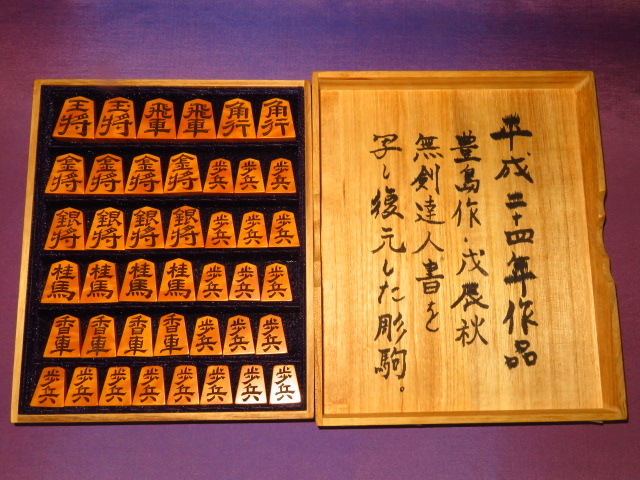 王将 玉将 飛車 飛車 角行 角行
金将 金将 金将 金将 歩兵 歩兵 歩兵
銀将 銀将 銀将 銀将 歩兵 歩兵 歩兵
桂馬 桂馬 桂馬 桂馬 歩兵 歩兵 歩兵
香車 香車 香車 香車 歩兵 歩兵 歩兵
歩兵 歩兵 歩兵 歩兵 歩兵 歩兵 歩兵 歩兵
平成二十四年作品
豊島作・戊辰秋
無剣達人書を
写し復元した彫駒。